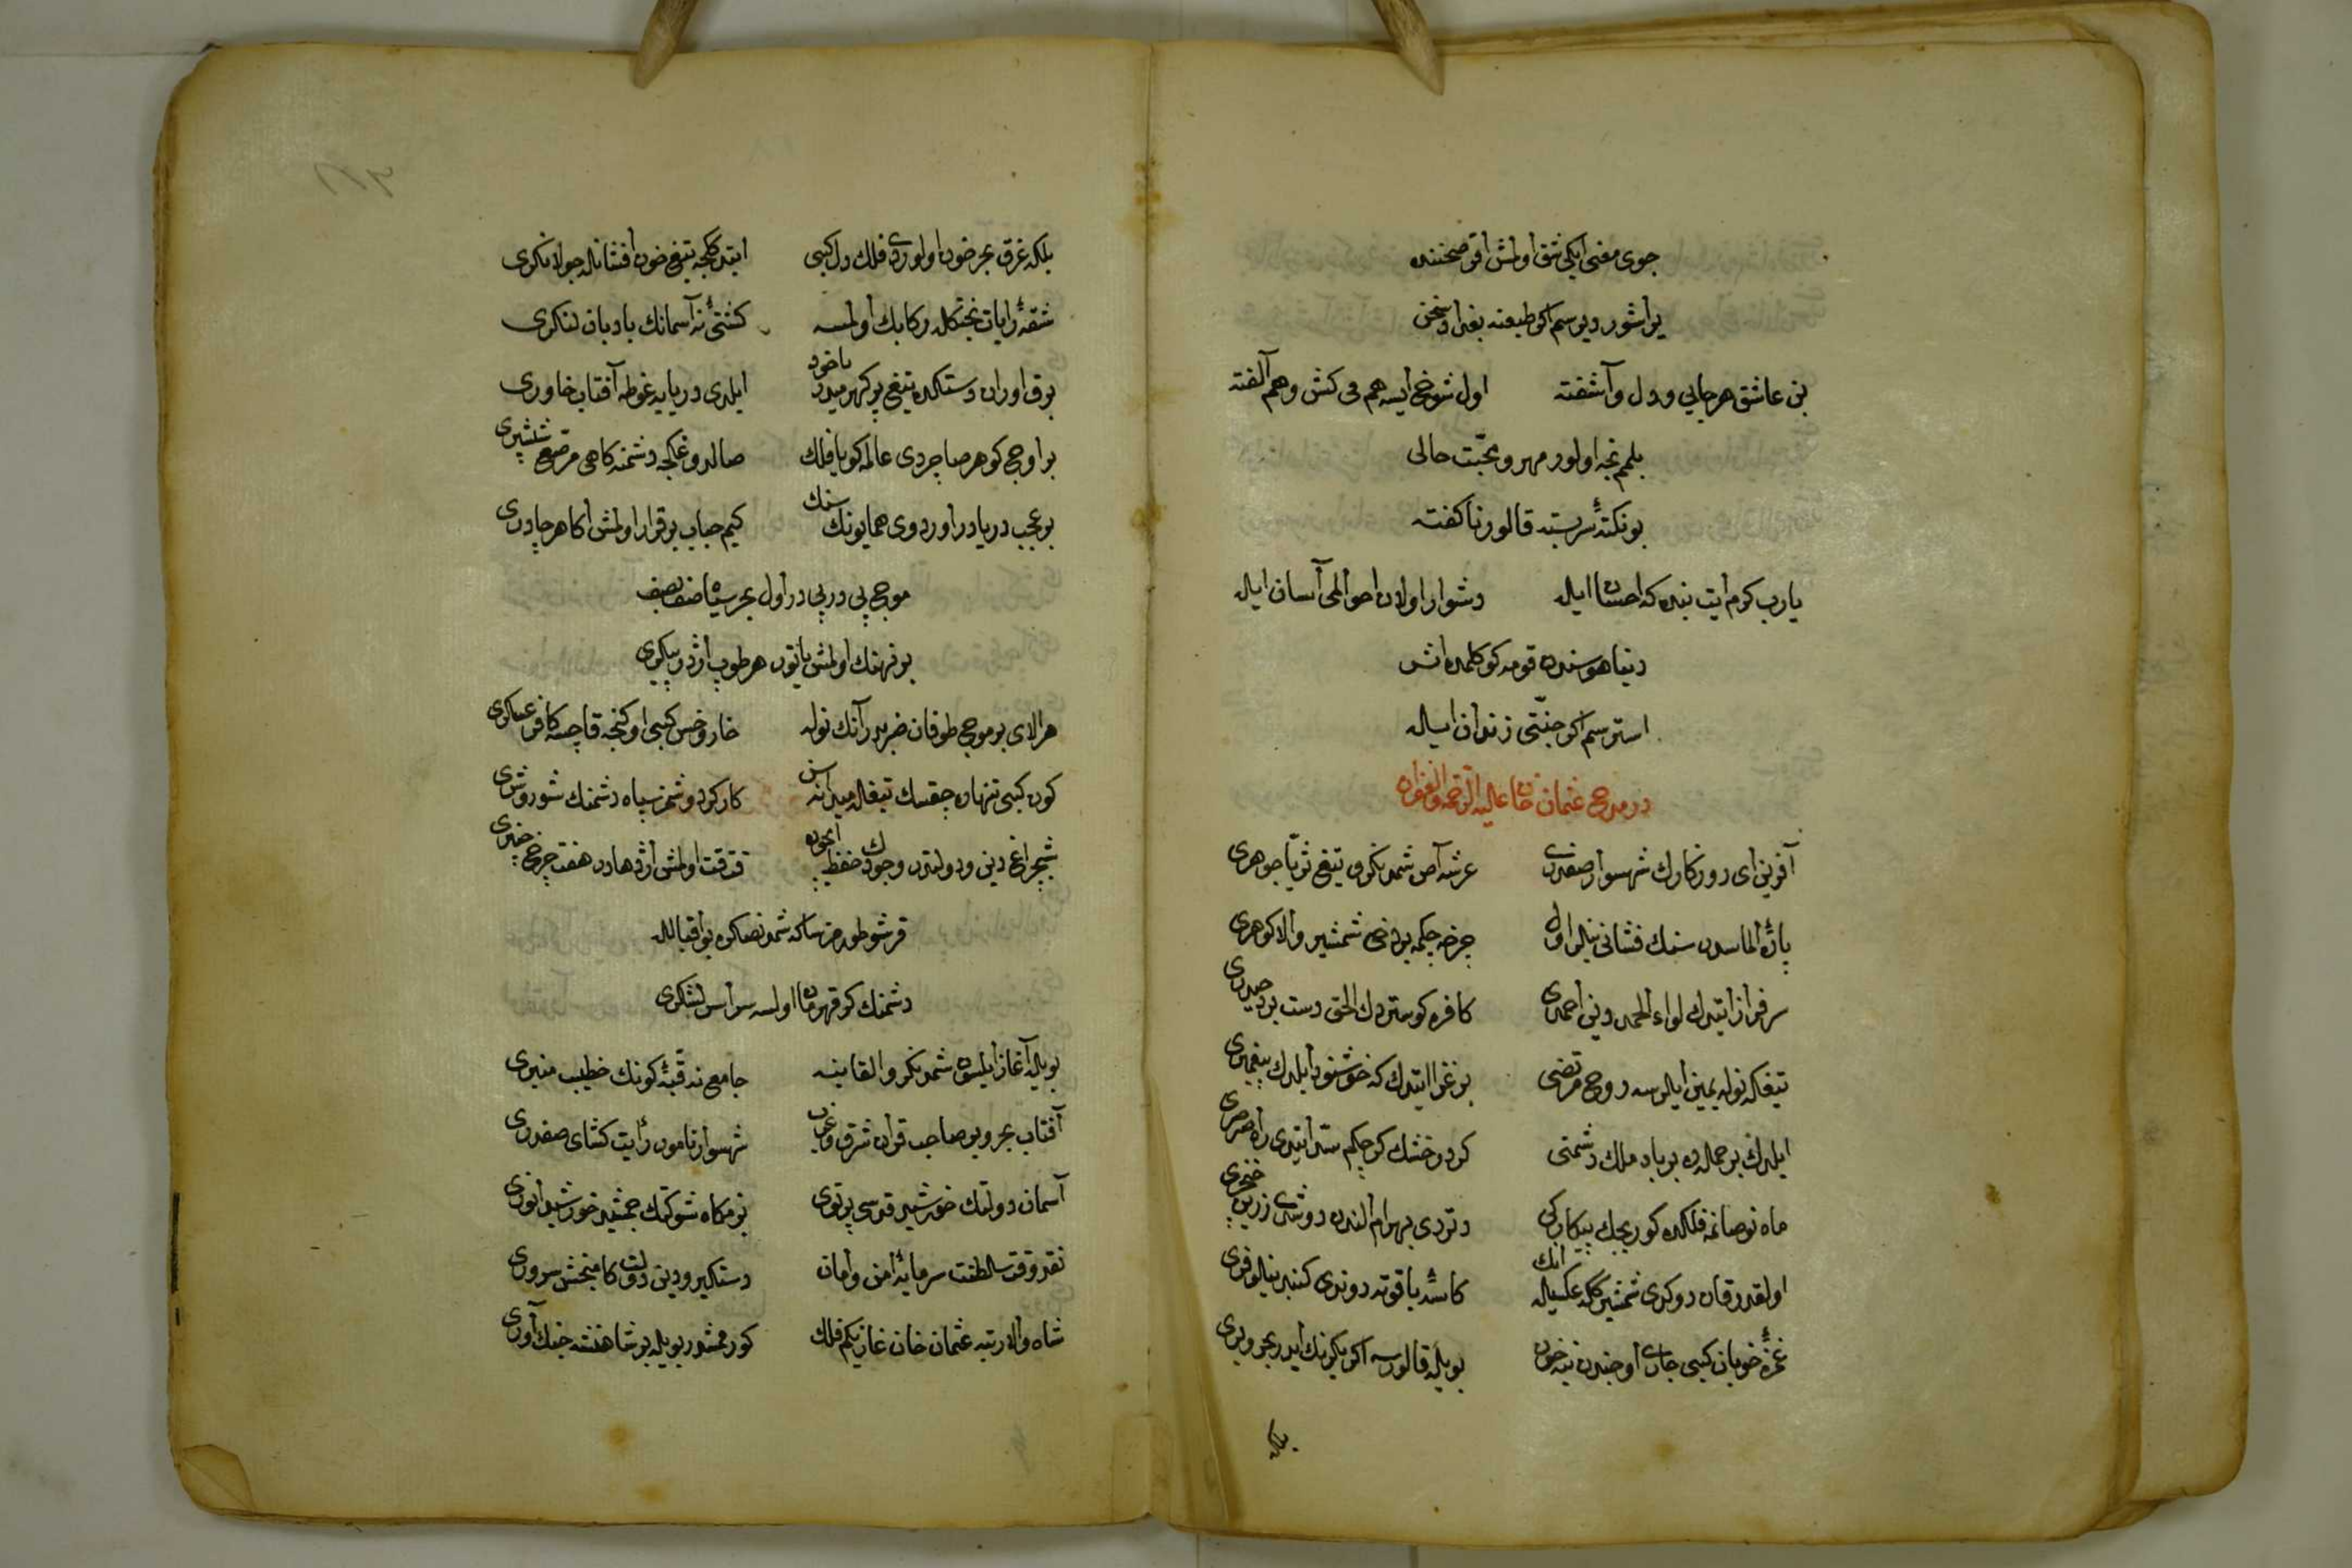 جوی مغنی ایکی شق اولمش اقر صحننده
یراشور دیرسم اکر طبعنه بغداد سخن
بن عاشق هرجایی و دل آشفته اول شوخ ایسه هم می کش و هم آلفته
بلمم نجه اولور مهر و محبت حالی
بو نکتهٔ سربسته قالور ناکفته
یارب کرم ایت بنده که احسان ایله دشوار اولان احوالمی آسان ایله
دنیا هوسنده قومه کوکلمده اثر
استرسم اکر جنتی زندان ایله
در مدح عثمان خان علیه الرحمة والغفران
آفرین ای روزکارك شهسوار صفدری عرشه آص شمدنکرو تیغ ثریا جوهری
پارهٔ الماسدن سنك فشانی بیله اول چرخه چکمه بردخی شمشیر والا کوهری
سرفراز ایتدك لواء الحمد دین احمدی کافره کوستردك الحق دست برد حیدری
تیغکه نوله یمین ایلرسه روح مرتضی بر غزا ایتدك که خوشنود ایلدك پیغمبری
ایلدك بر حمله ده برباد ملك دشمنی کرد رخشك کوچکم سد ایتدی راه صرصری
ماه نو صانمه فلکده کوریجك پیکارکی دتردی بهرام الندن دوشدی زرین خنجری
اولقدر قان دوکدی شمشیرك که عکسیله انك کاسهٔ یاقوته دوندی کنبد نیلوفری
غمزهٔ خوبان کبی جاری اوجندن نیه خون بویله قالورسه اکر یکرنك ایدر بحر و بری
بلکه
بلکه غرق بحر خون اولوردی فلك دل کبی ایتد کجه تیغ خون افشانله جولانکری
شقهٔ رایات بختکله رکابك اولمسه کشتئ نه آسمانك بادبان لنکری
برق اوران دستکده تیغ پر کهر میدر یاخود ایلدی دریایه غوطه آفتاب خاوری
بر اوج کوهر صاچردی عالمه کویا فلك صالدوغکجه دشمنه کاهی مرصع ششپری
بر عجب دریادر اوردوی همایونك سنك کیم حباب برقرار اولمش اکا هر چادری
موج پی در پی در اول بحر سپاه صف بصف
بر نهنك اولمش یاتور هر طوپ اژدر پیکری
هر الای بر موج طوفان ضربدر آنك نوله خار و خس کبی اوکنجه قاچسه کافر عسکری
کون کبی تنها چقسك تیغله میدانه سن کار کر دوشمز سپاه دشمنك شور و شری
شبچراغ دین و دولتدر وجودك حفظ ایچون قتقت اولمش اژدهادر هفت چرخ چنبری
قرشو طورمز ساکه شمدنصکره بو اقبالله
دشمنك کر قهرمان اولسه سراسر لشکری
بویله آغاز ایلسون شمدنکرو القابنه جامع نه قبهٔ کونك خطیب منبری
آفتاب بحر و بر صاحب قران شرق و غرب شهسوار نامور رایت کشای صفدری
آسمان دولتك خورشید قدسی پرتوی بزمکاه شوکتك جمشید خورشید انوری
نقد وقت سلطنت سرمایهٔ امن و امان دستکیر و دین دولت کامبخش سروری
شاه والا رتبه عثمان خان غازیکم فلك کورممشدر بویله بر شاهنشه جنك آوری